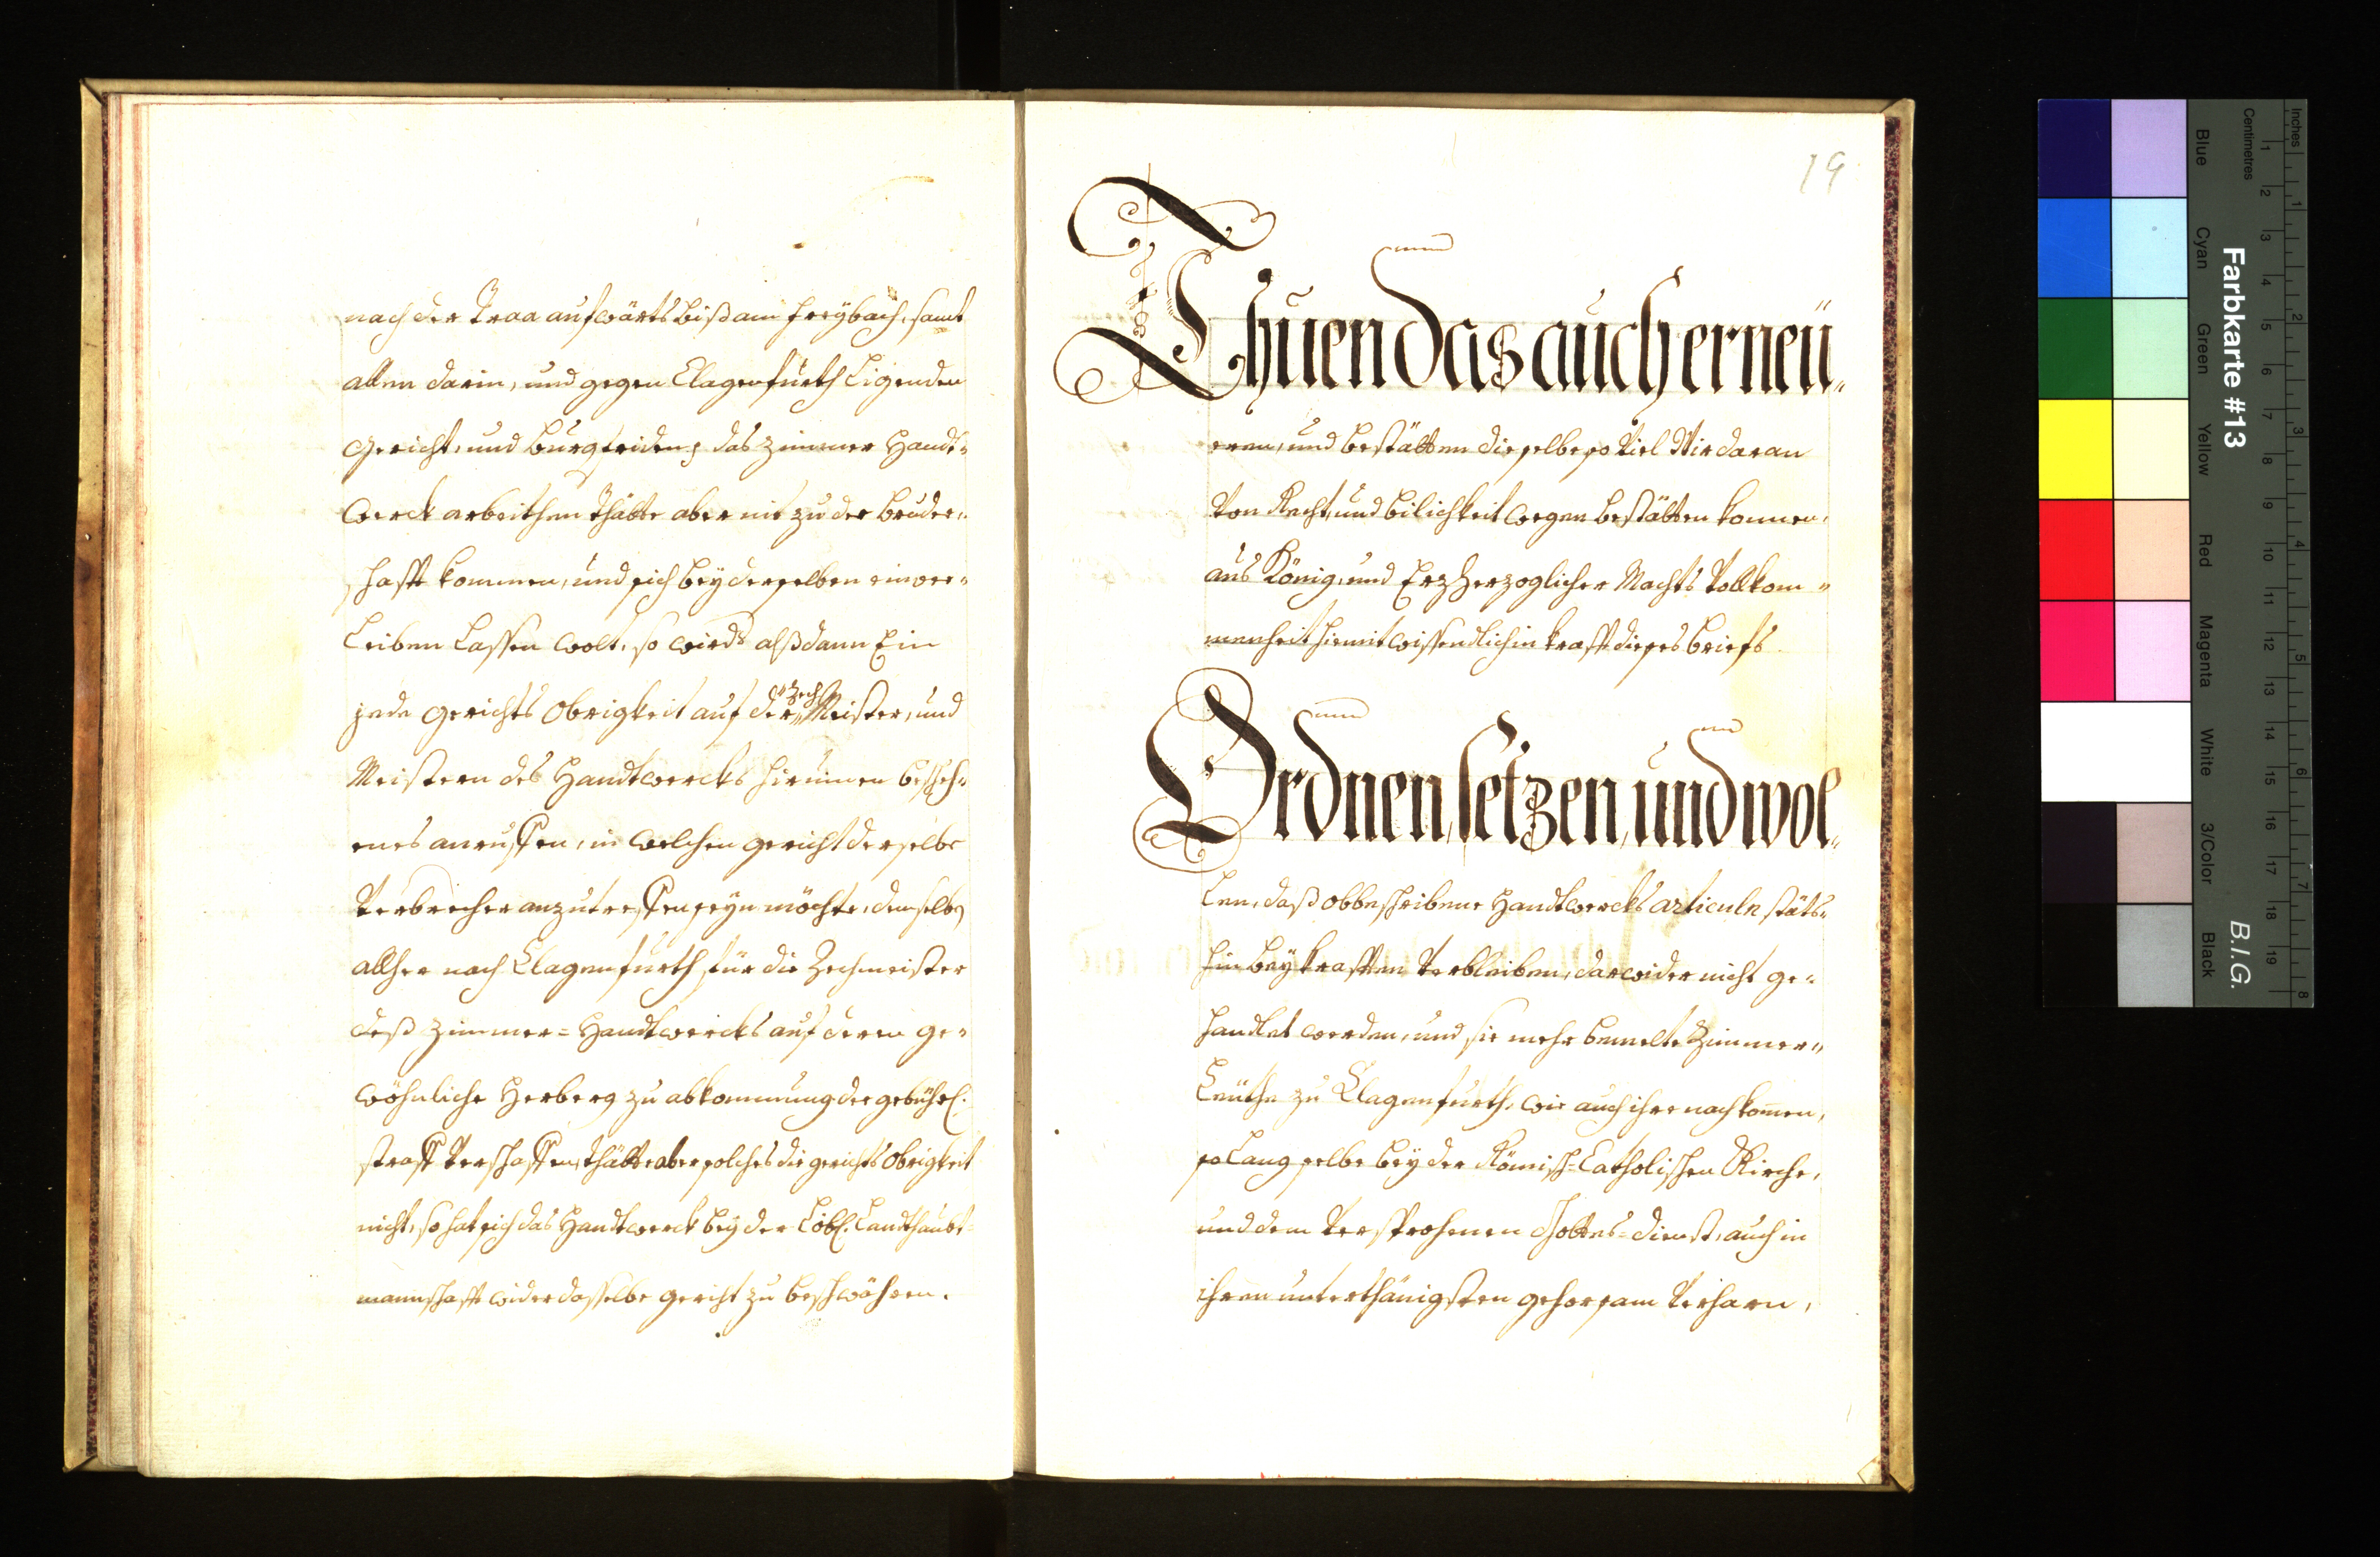 nach der Traa aufwärts biß am Freybach, samt
allen darin, und gegen Clagenfürth ligenden
Gericht, und Burgfridens das Zimmer Handt=
werck arbeithen thätte aber nit zu der Bruder„
schafft kommen, und sich bey derselben einver=
leiben lassen wolt, so wirdt alßdann Ein
jede Gerichts Obrigkeit auf der„
Zech
Meister, und
Meistern des Handtwercks hirinnen bescheh=
enes anruffen, in welchen gericht derselbe
Verbrecher anzutreffen seyn möchte, denselben
allher nach Clagenfurth für die Zechmeister
deß Zimmer=Handtwercks auf deren ge=
wöhnliche Herberg zu abkommung der gebührl:
straff verschaffen, thätte aber solches die gerichts Obrigkeit
nicht, so hat sich das Handtwerck bey der Löbl: Landtshaubt=
mannschafft wider dasselbe gericht zu beschwähren.
19
Thuen das auch erneü„
eren, und bestätten dieselbe so Viel Wir daran
Von Recht, und bilichkeit wegen bestätten konnen,
aus König, und Erzherzoglicher Machts Vollkom„
menheit hiemit wissendlich in krafft dieses briefs
Ordnen, setzen, und wol„
len, daß obbeschribene Handtwercks articuln stäts„
hin bey krafften Verbleiben, darwider nicht ge=
handlet werden, und sie mehr bemelte Zimmer„
Leüthe zu Clagenfurth, wie auch ihre nachkomen,
solang selbe bey der Römisch=Catholischen Kirche,
und dem Versprochenen Gottes=dienst, auch in
ihren unterthänigsten gehorsam Verharn,
Farbkarte #13
B.I.G.
Inches
Centimetres
1 2 3 4 5 6 7 8 9 10 11 12 13 14 15 16 17 18 19
1 2 3 4 5 6 7 8
Blue
Cyan
Green
Yellow
Red
Magenta
White
3/Color
Black